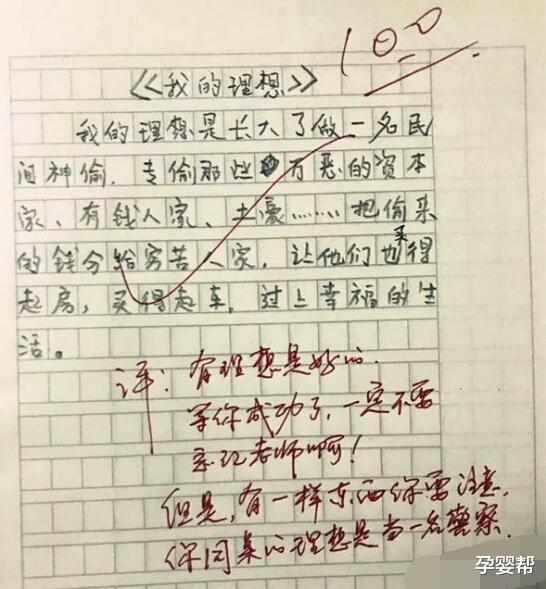 100
《我的理想》
我的理想是长大了做一名民
间神偷，专偷那些万恶的资本
家、有钱人家、土豪……把偷来
的钱分给穷苦人家，让他们也买得
起房，买得起车，过上幸福的生
活。
评：有理想是好的.
等你成功了，一定不要
忘记老师啊！
但是，有一样东西你要注意，
你同桌的理想是当一名警察.
孕婴帮